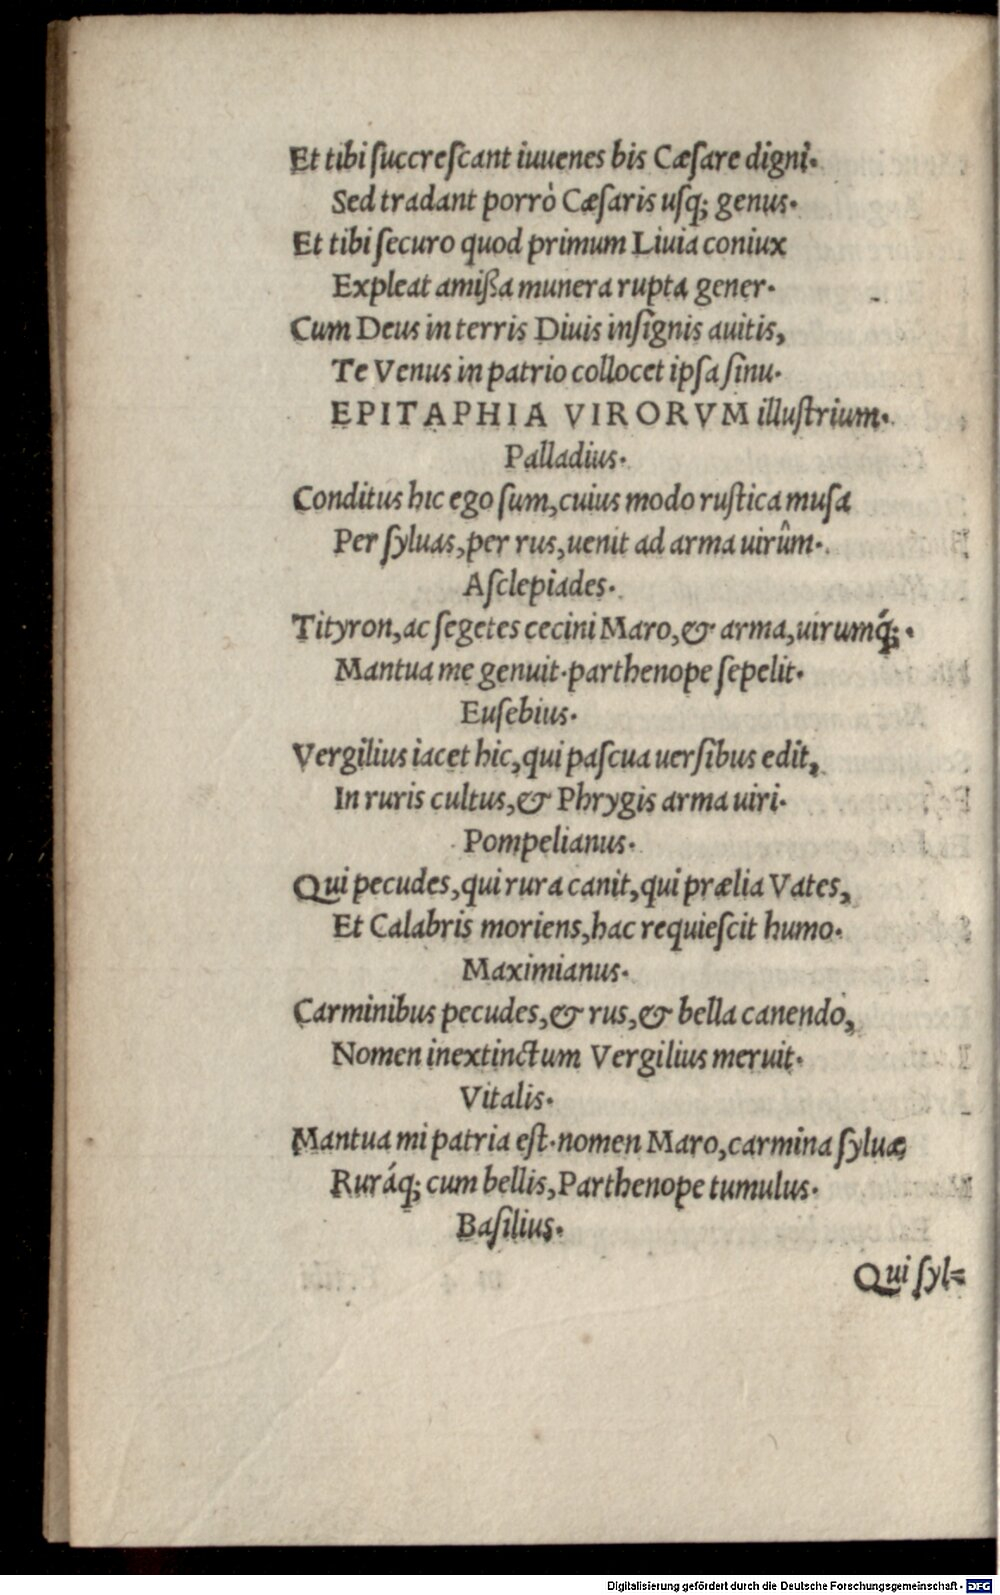 Et tibi ſuccreſcant iuuenes bis Cæſare digni.
Sed tradant porrò Cæſaris uſq; genus.
Et tibi ſecuro quod primum Liuia coniux
Expleat amißa munera rupta gener.
Cum Deus in terris Diuis inſignis auitis,
Te Venus in patrio collocet ipſa ſinu.
EPITAPHIA VIRORVM illuſtrium.
Palladius.
Conditus hic ego ſum, cuius modo ruſtica muſa
Per ſyluas, per rus, uenit ad arma uirûm.
Aſclepiades.
Tityron, ac ſegetes cecini Maro, & arma, uirumq́;.
Mantua me genuit. parthenope ſepelit.
Euſebius.
Vergilius iacet hic, qui paſcua uerſibus edit,
In ruris cultus, & Phrygis arma uiri.
Pompelianus.
Qui pecudes, qui rura canit, qui prælia Vates,
Et Calabris moriens, hac requieſcit humo.
Maximianus.
Carminibus pecudes, & rus, & bella canendo,
Nomen inextinctum Vergilius meruit.
Vitalis.
Mantua mi patria eſt. nomen Maro, carmina ſyluæ
Ruráq; cum bellis, Parthenope tumulus.
Baſilius.
Qui ſyl=
Digitalisierung gefördert durch die Deutsche Forschungsgemeinschaft - DFG